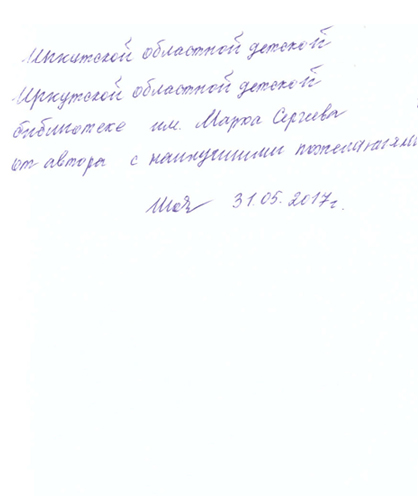 Иркутской областной детской
Иркутской областной детской
библиотеке им. Марка Сергеева
от автора с наилучшими пожеланиями
31.05.2017г.